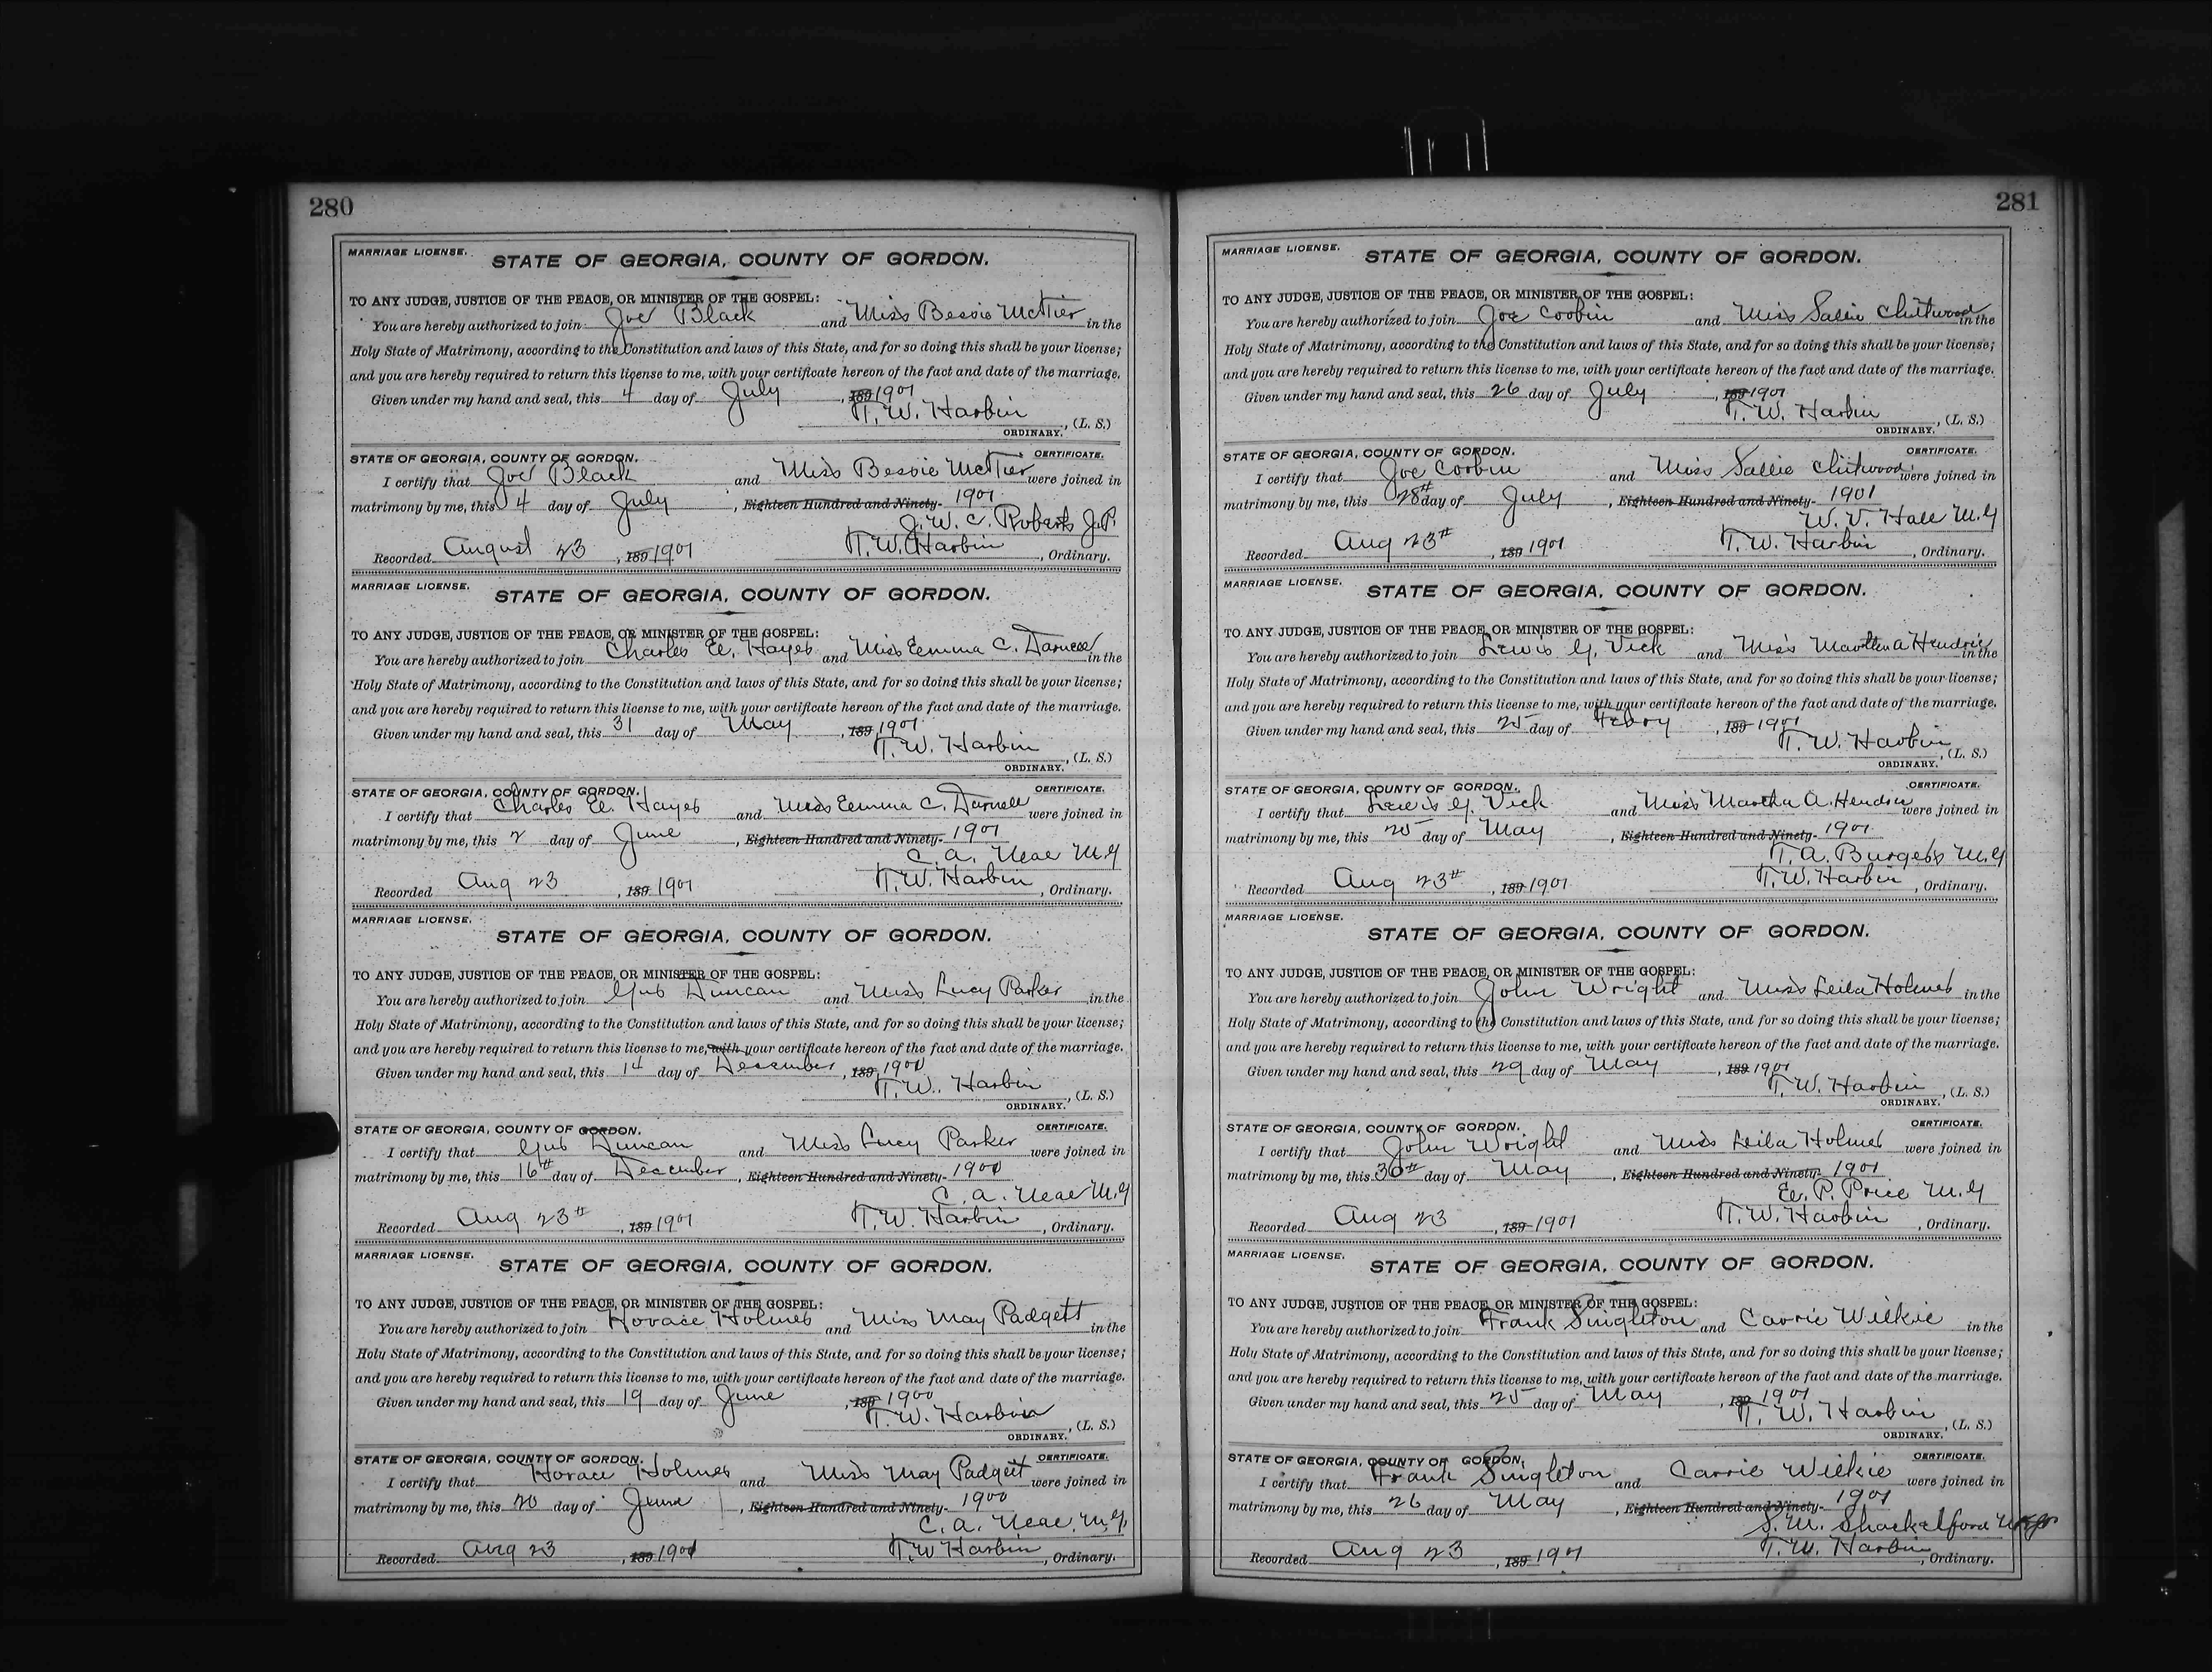 280
MARRIAGE LICENSE.
STATE OF GEORGIA, COUNTY OF GORDON.
TO ANY JUDGE, JUSTICE OF THE PEACE, OR MINISTER OF THE GOSPEL:
You are hereby authorized to join Joe Black and Miss Bessie McTier in the
Holy State of Matrimony, according to the Constitution and laws of this State, and for so doing this shall be your license;
and you are hereby required to return this license to me, with your certificate hereon of the fact and date of the marriage.
Given under my hand and seal, this 4 day of July, 189 1901
T. W. Harbin, (L. S.)
ORDINARY.
STATE OF GEORGIA, COUNTY OF GORDON. CERTIFICATE.
I certify that Joe Black and Miss Bessie McTier were joined in
matrimony by me, this 4 day of July, Eighteen Hundred and Ninety- 1901
J. W. C. Roberts J.P.
Recorded August 23, 189 1901 T. W. Harbin, Ordinary.
MARRIAGE LICENSE.
STATE OF GEORGIA, COUNTY OF GORDON.
TO ANY JUDGE, JUSTICE OF THE PEACE, OR MINISTER OF THE GOSPEL:
You are hereby authorized to join Charles E. Hayes and Miss Emma C. Darnell in the
Holy State of Matrimony, according to the Constitution and laws of this State, and for so doing this shall be your license;
and you are hereby required to return this license to me, with your certificate hereon of the fact and date of the marriage.
Given under my hand and seal, this 31 day of May, 189 1901
T. W. Harbin, (L. S.)
ORDINARY.
STATE OF GEORGIA, COUNTY OF GORDON. CERTIFICATE.
I certify that Charles E. Hayes and Miss Emma C. Darnell were joined in
matrimony by me, this 2 day of June, Eighteen Hundred and Ninety- 1901
C. A. Neal M.G
Recorded Aug 23, 189 1901 T. W. Harbin, Ordinary.
MARRIAGE LICENSE.
STATE OF GEORGIA, COUNTY OF GORDON.
TO ANY JUDGE, JUSTICE OF THE PEACE, OR MINISTER OF THE GOSPEL:
You are hereby authorized to join Gus Duncan and Miss Lucy Parker in the
Holy State of Matrimony, according to the Constitution and laws of this State, and for so doing this shall be your license;
and you are hereby required to return this license to me, with your certificate hereon of the fact and date of the marriage.
Given under my hand and seal, this 14 day of December, 189 1900
T. W. Harbin, (L. S.)
ORDINARY.
STATE OF GEORGIA, COUNTY OF GORDON. CERTIFICATE.
I certify that Gus Duncan and Miss Lucy Parker were joined in
matrimony by me, this 16th day of December, Eighteen Hundred and Ninety- 1900
C. A. Neal M.G
Recorded Aug 23rd, 189 1901 T. W. Harbin, Ordinary.
MARRIAGE LICENSE.
STATE OF GEORGIA, COUNTY OF GORDON.
TO ANY JUDGE, JUSTICE OF THE PEACE, OR MINISTER OF THE GOSPEL:
You are hereby authorized to join Horace Holmes and Miss May Padgett in the
Holy State of Matrimony, according to the Constitution and laws of this State, and for so doing this shall be your license;
and you are hereby required to return this license to me, with your certificate hereon of the fact and date of the marriage.
Given under my hand and seal, this 19 day of June, 189 1900
T. W. Harbin, (L. S.)
ORDINARY.
STATE OF GEORGIA, COUNTY OF GORDON. CERTIFICATE.
I certify that Horace Holmes and Miss May Padgett were joined in
matrimony by me, this 20 day of June, Eighteen Hundred and Ninety- 1900
C. A. Neal M.G.
Recorded Aug 23, 189 1901 T. W Harbin, Ordinary.
281
MARRIAGE LICENSE.
STATE OF GEORGIA, COUNTY OF GORDON.
TO ANY JUDGE, JUSTICE OF THE PEACE, OR MINISTER OF THE GOSPEL:
You are hereby authorized to join Joe Corbin and Miss Sallie Chitwood in the
Holy State of Matrimony, according to the Constitution and laws of this State, and for so doing this shall be your license;
and you are hereby required to return this license to me, with your certificate hereon of the fact and date of the marriage.
Given under my hand and seal, this 26 day of July, 189 1901
T. W. Harbin, (L. S.)
ORDINARY.
STATE OF GEORGIA, COUNTY OF GORDON. CERTIFICATE.
I certify that Joe Corbin and Miss Sallie Chitwood were joined in
matrimony by me, this 28th day of July, Eighteen Hundred and Ninety- 1901
W. V. Hall M.G
Recorded Aug 23rd, 189 1901 T. W. Harbin, Ordinary.
MARRIAGE LICENSE.
STATE OF GEORGIA, COUNTY OF GORDON.
TO ANY JUDGE, JUSTICE OF THE PEACE, OR MINISTER OF THE GOSPEL:
You are hereby authorized to join Lewis G. Vick and Miss Martha A Hendrix in the
Holy State of Matrimony, according to the Constitution and laws of this State, and for so doing this shall be your license;
and you are hereby required to return this license to me, with your certificate hereon of the fact and date of the marriage.
Given under my hand and seal, this 25 day of Febry, 189 1901
T. W. Harbin, (L. S.)
ORDINARY.
STATE OF GEORGIA, COUNTY OF GORDON. CERTIFICATE.
I certify that Lewis G. Vick and Miss Martha A. Hendrix were joined in
matrimony by me, this 25 day of May, Eighteen Hundred and Ninety- 1901
T. A. Burgess M.G
Recorded Aug 23rd, 189 1901 T. W. Harbin, Ordinary.
MARRIAGE LICENSE.
STATE OF GEORGIA, COUNTY OF GORDON.
TO ANY JUDGE, JUSTICE OF THE PEACE, OR MINISTER OF THE GOSPEL:
You are hereby authorized to join John Wright and Miss Leila Holmes in the
Holy State of Matrimony, according to the Constitution and laws of this State, and for so doing this shall be your license;
and you are hereby required to return this license to me, with your certificate hereon of the fact and date of the marriage.
Given under my hand and seal, this 29 day of May, 189 1901
T. W. Harbin, (L. S.)
ORDINARY.
STATE OF GEORGIA, COUNTY OF GORDON. CERTIFICATE.
I certify that John Wright and Miss Leila Holmes were joined in
matrimony by me, this 30th day of May, Eighteen Hundred and Ninety- 1901
E. P. Price M.G
Recorded Aug 23, 189 1901 T. W. Harbin, Ordinary.
MARRIAGE LICENSE.
STATE OF GEORGIA, COUNTY OF GORDON.
TO ANY JUDGE, JUSTICE OF THE PEACE, OR MINISTER OF THE GOSPEL:
You are hereby authorized to join Frank Singleton and Carrie Wilkie in the
Holy State of Matrimony, according to the Constitution and laws of this State, and for so doing this shall be your license;
and you are hereby required to return this license to me, with your certificate hereon of the fact and date of the marriage.
Given under my hand and seal, this 25 day of May, 189 1901
T. W. Harbin, (L. S.)
ORDINARY.
STATE OF GEORGIA, COUNTY OF GORDON. CERTIFICATE.
I certify that Frank Singleton and Carrie Wilkie were joined in
matrimony by me, this 26 day of May, Eighteen Hundred and Ninety- 1901
S. M. Shackelford
Recorded Aug 23, 189 1901 T. W. Harbin, Ordinary.